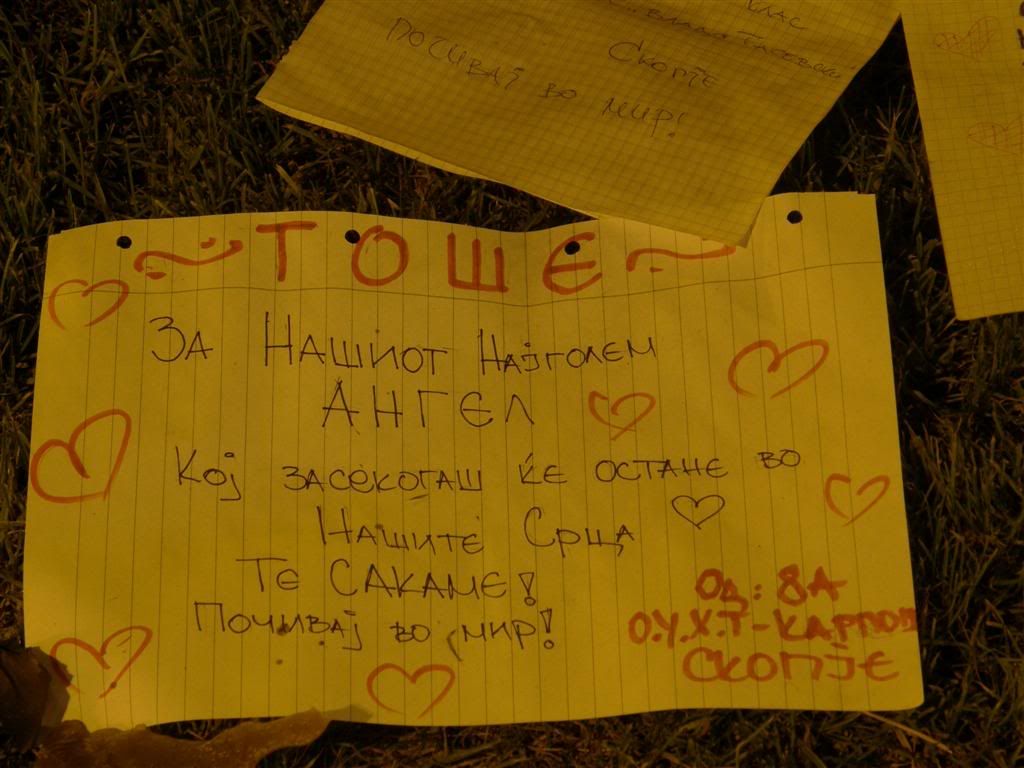 клас
Скопје
Почивај во мир!
ТОШЕ
За Нашиот Најголем
АНГЕЛ
Кој засекогаш ќе остане во
Нашите Срца
Те САКАМЕ!
Почивај во мир!
Од: 8А
О.У.Х.Т-КАРПОШ
СКОПЈЕ